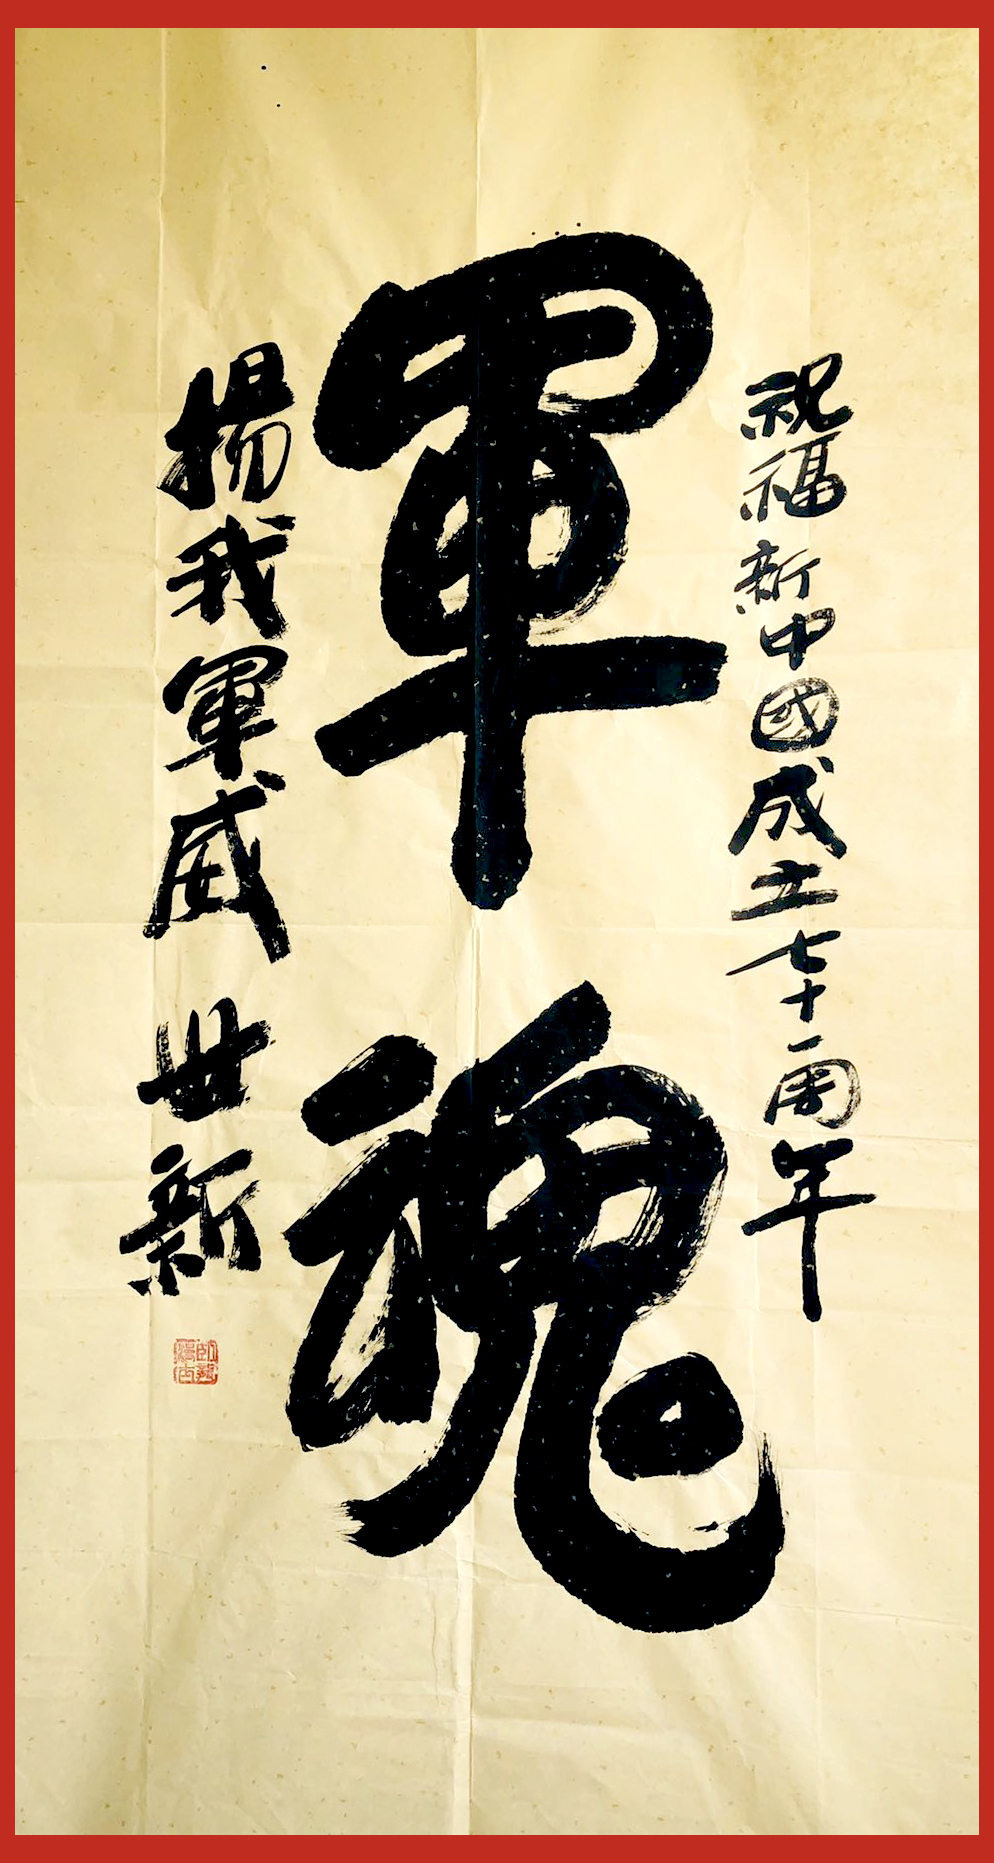 祝福新中國成立七十一周年
軍魂
揚我軍威 世新